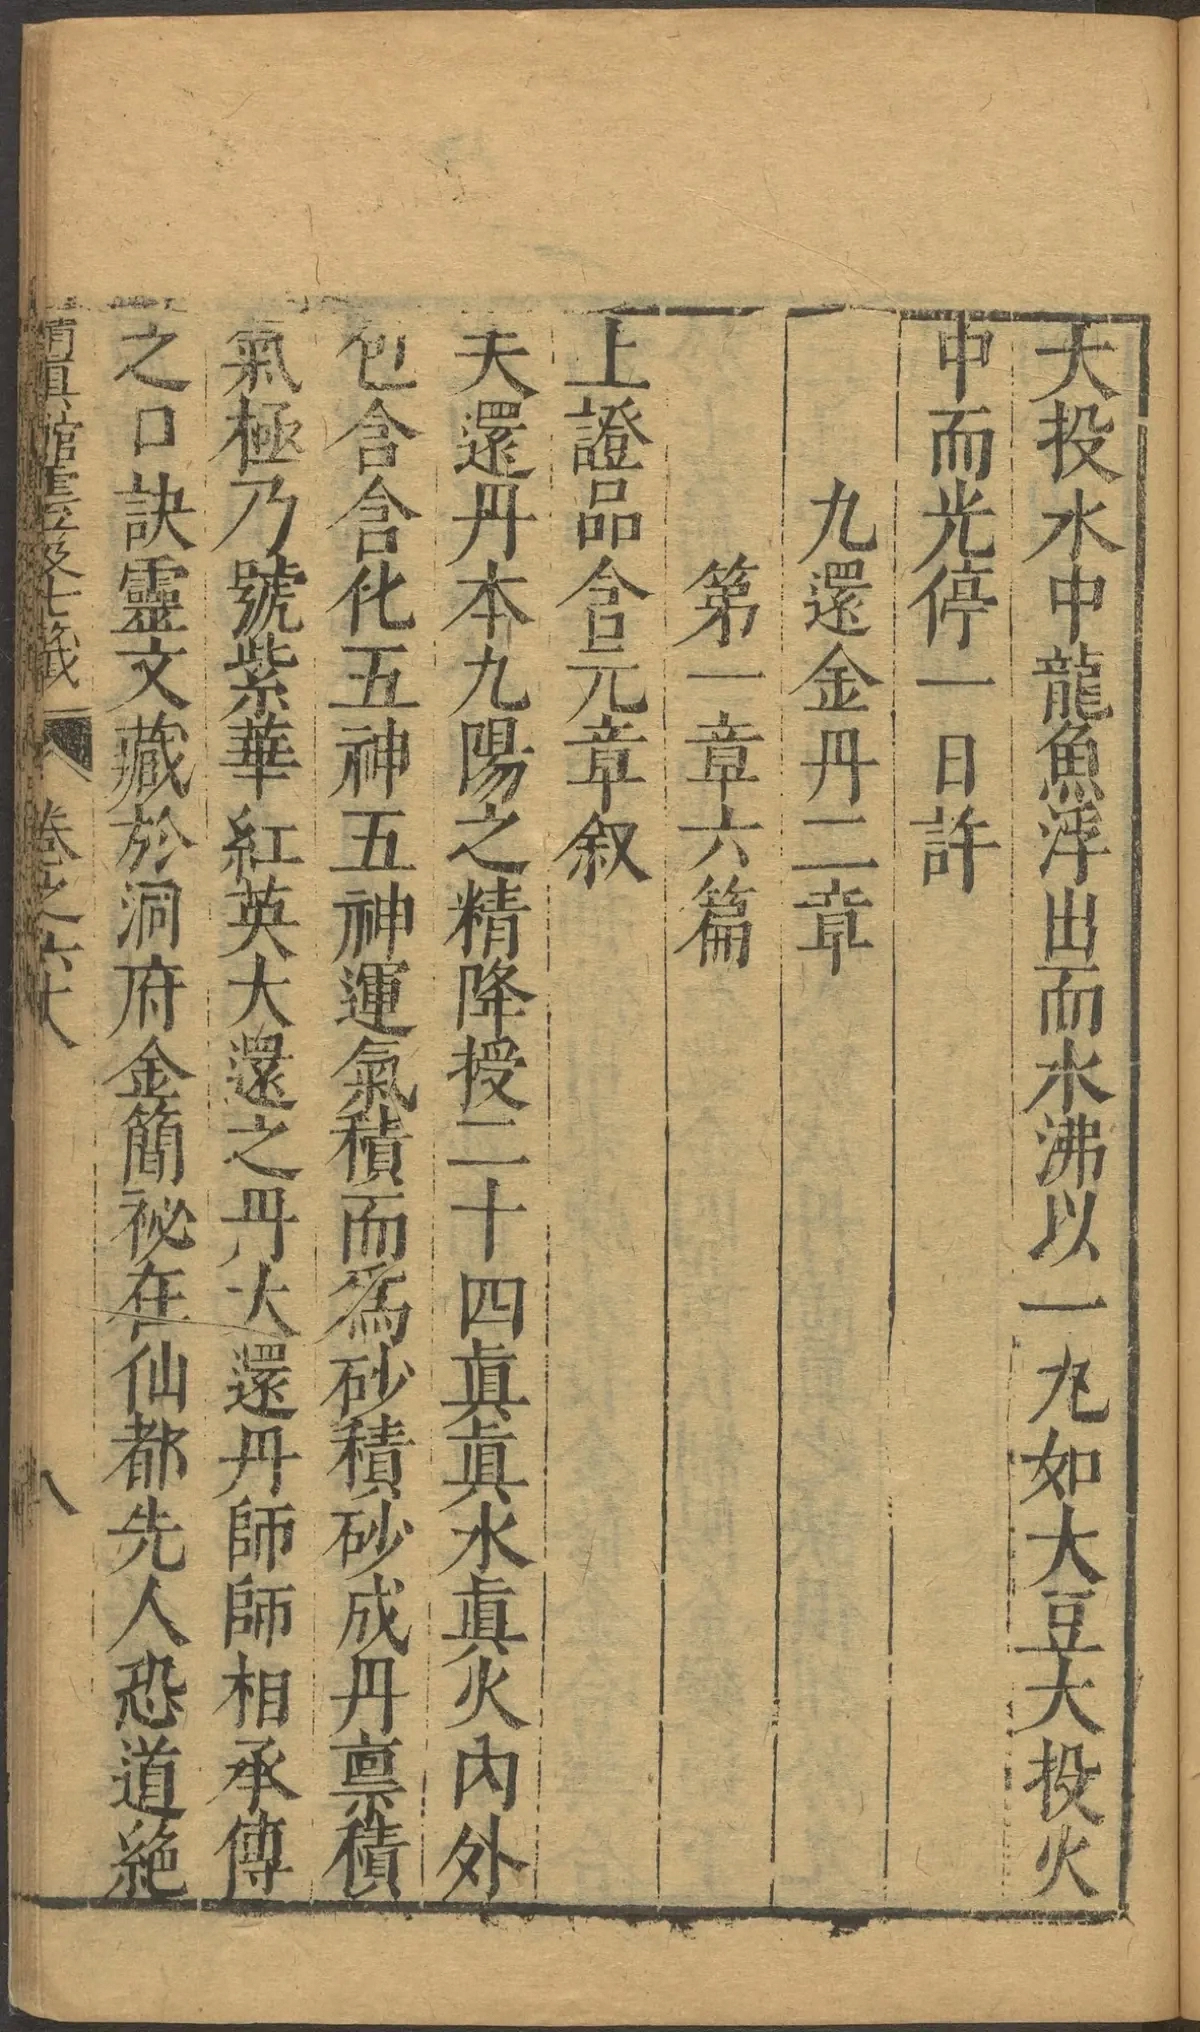 大投水中龍魚浮出而水沸以一丸如大豆大投火
中而光停一日許
九還金丹二章
第一章六篇
上證品含元章叙
夫還丹本九陽之精降授二十四眞眞水眞火内外
包含含化五神五神運氣積而為砂積砂成丹禀積
氣極乃號紫華紅英大還之丹大還丹師師相承傳
之口訣靈文藏於洞府金簡祕在仙都先人恐道絶
清真館雲笈七籤 卷之六十八 八